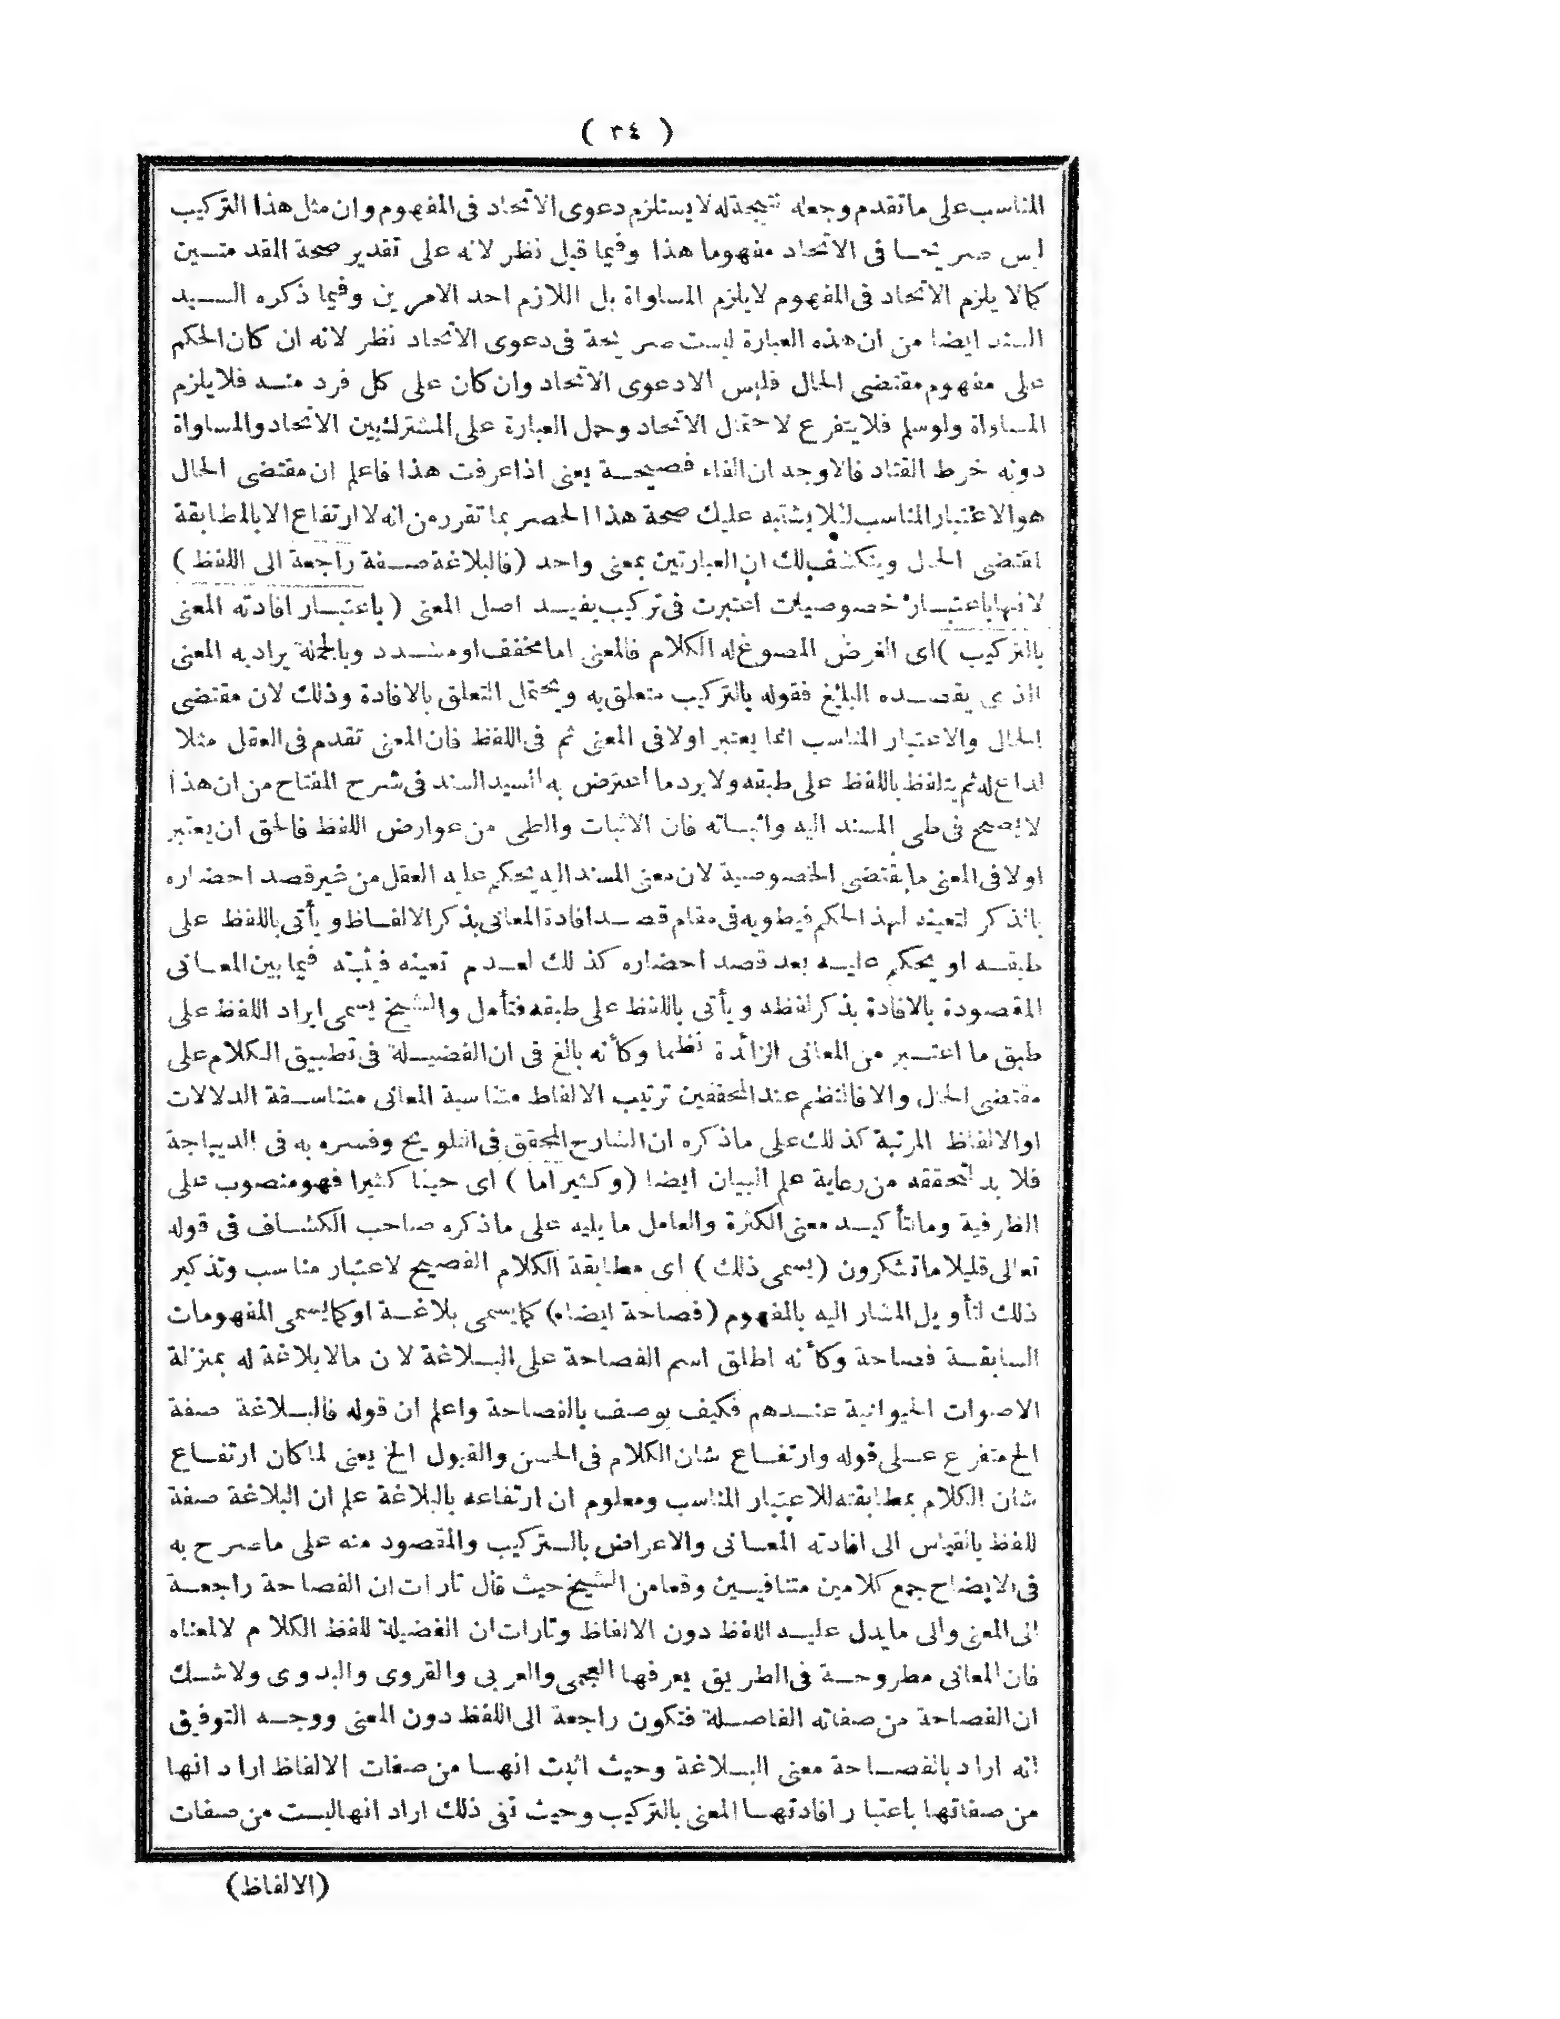 ( ٣٤ )
المناسب على ما تقدم وجعله نتيجة له لا يستلزم دعوى الاتحاد فى المفهوم وان مثل هذا التركيب
ليس صريحا فى الاتحاد مفهوما هذا وفيما قيل نظر لانه على تقدير صحة المقدمتين
كما لا يلزم الاتحاد فى المفهوم لا يلزم المساواة بل اللازم احد الامرين وفيما ذكره السيد
السند ايضا من ان هذه العبارة ليست صريحة فى دعوى الاتحاد نظر لانه ان كان الحكم
على مفهوم مقتضى الحال فليس الا دعوى الاتحاد وان كان على كل فرد منه فلا يلزم
المساواة ولو سلم فلا يتفرع لاحتمال الاتحاد وحمل العبارة على المشترك بين الاتحاد والمساواة
دونه خرط القتاد فالاوجه ان الفاء فصيحة يعنى اذا عرفت هذا فاعلم ان مقتضى الحال
هو الاعتبار المناسب لئلا يشتبه عليك صحة هذا الحصر بما تقرر من انه لا ارتفاع الا بالمطابقة
لمقتضى الحال وينكشف لك ان العبارتين بمعنى واحد (فالبلاغة صفة راجعة الى اللفظ )
لانها باعتبار خصوصيات اعتبرت فى تركيب يفيد اصل المعنى ( باعتبار افادته المعنى
بالتركيب ) اى الغرض المصوغ له الكلام فالمعنى اما مخفف او مشدد وبالجملة يراد به المعنى
الذى يقصده البليغ فقوله بالتركيب متعلق به ويحتمل التعلق بالافادة وذلك لان مقتضى
الحال والاعتبار المناسب انما يعتبر اولا فى المعنى ثم فى اللفظ فان المعنى تقدم فى العقل مثلا
لداع له ثم يتلفظ باللفظ على طبقه ولا يرد ما اعترض به السيد السند فى شرح المفتاح من ان هذا
لا يصح فى طى المسند اليه واثباته فان الاثبات والطى من عوارض اللفظ فالحق ان يعتبر
اولا فى المعنى ما يقتضى الخصوصية لان معنى المسند اليه يحكم عليه العقل من غير قصد احضاره
بالذكر لتعينه لهذا الحكم فيطويه فى مقام قصد افادة المعانى بذكر الالفاظ ويأتى باللفظ على
طبقه او يحكم عليه بعد قصد احضاره كذلك لعدم تعينه فيثبته فيما بين المعانى
المقصودة بالافادة بذكر لفظه ويأتى باللفظ على طبقه فتأمل والشيخ يسمى ايراد اللفظ على
طبق ما اعتبر من المعانى الزائدة نظما وكأنه بالغ فى ان الفضيلة فى تطبيق الكلام على
مقتضى الحال والا فالنظم عند المحققين ترتيب الالفاظ متناسبة المعانى متناسقة الدلالات
او الالفاظ المرتبة كذلك على ما ذكره ان الشارح المحقق فى التلويح وفسره به فى الديباجة
فلا بد لتحققه من رعاية علم البيان ايضا (وكثيرا ما ) اى حينا كثيرا فهو منصوب على
الظرفية وما لتأكيد معنى الكثرة والعامل ما يليه على ما ذكره صاحب الكشاف فى قوله
تعالى قليلا ما تشكرون (يسمى ذلك ) اى مطابقة الكلام الفصيح لاعتبار مناسب وتذكير
ذلك لتأويل المشار اليه بالمفهوم (فصاحة ايضا) كما يسمى بلاغة او كما يسمى المفهومات
السابقة فصاحة وكأنه اطلق اسم الفصاحة على البلاغة لان مالا بلاغة له بمنزلة
الاصوات الحيوانية عندهم فكيف يوصف بالفصاحة واعلم ان قوله فالبلاغة صفة
الخ متفرع على قوله وارتفاع شان الكلام فى الحسن والقبول الخ يعنى لما كان ارتفاع
شان الكلام بمطابقته للاعتبار المناسب ومعلوم ان ارتفاعه بالبلاغة علم ان البلاغة صفة
للفظ بالقياس الى افادته المعانى والاعراض بالتركيب والمقصود منه على ما صرح به
فى الايضاح جمع كلامين متنافيين وقعا من الشيخ حيث قال تارات ان الفصاحة راجعة
الى المعنى والى ما يدل عليه اللفظ دون الالفاظ وتارات ان الفضيلة للفظ الكلام لا لمعناه
فان المعانى مطروحة فى الطريق يعرفها العجمى والعربى والقروى والبدوى ولا شك
ان الفصاحة من صفاته الفاصلة فتكون راجعة الى اللفظ دون المعنى ووجه التوفيق
انه اراد بالفصاحة معنى البلاغة وحيث اثبت انها من صفات الالفاظ اراد انها
من صفاتها باعتبار افادتها المعنى بالتركيب وحيث نفى ذلك اراد انها ليست من صفات
(الالفاظ)